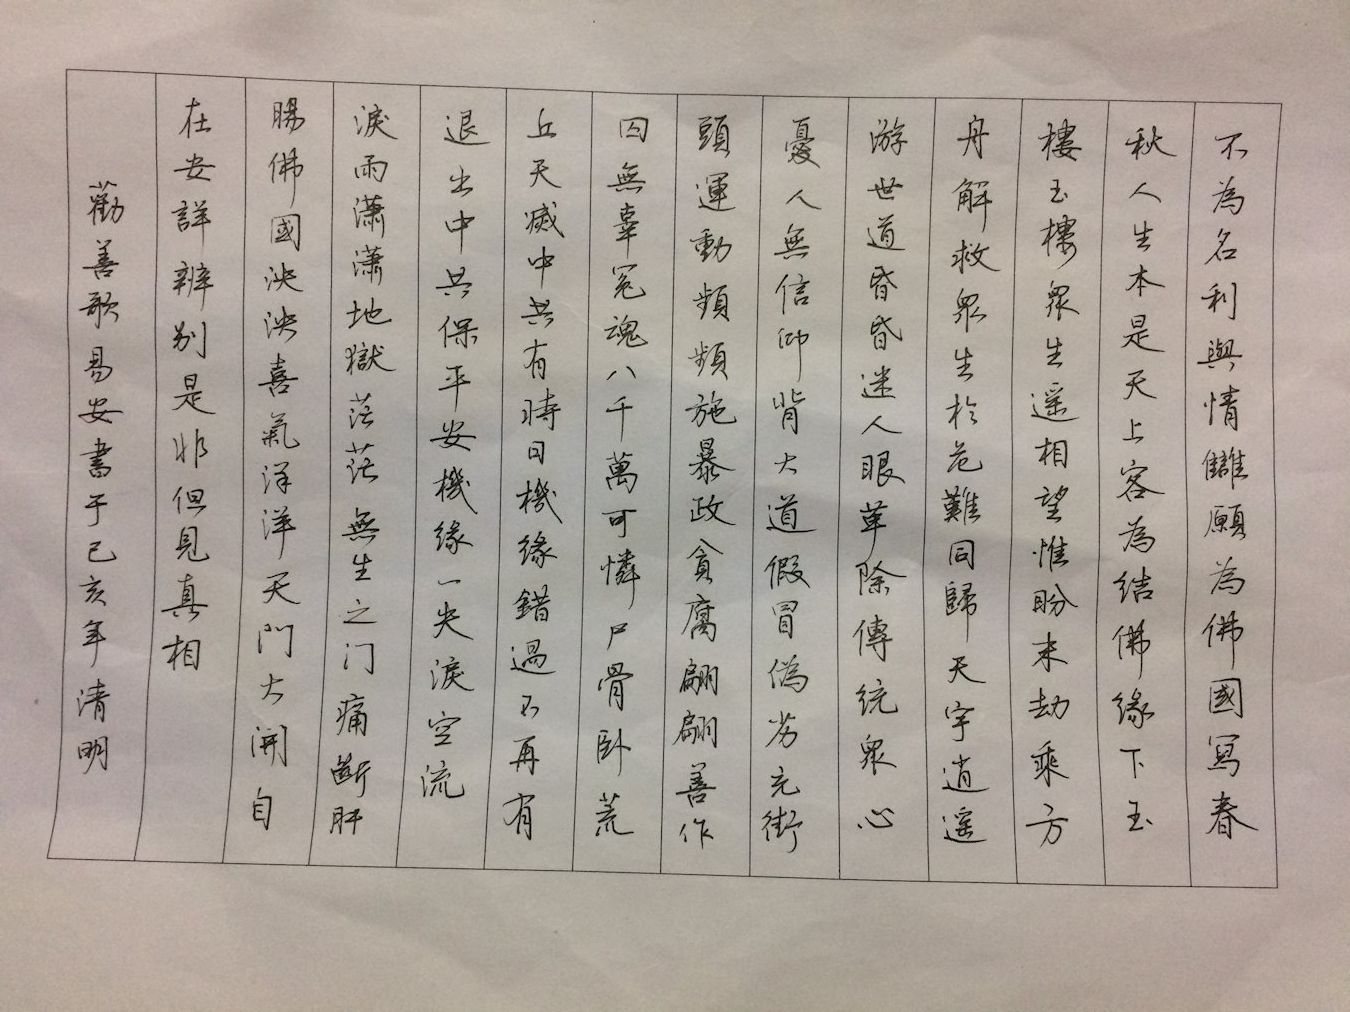 不為名利與情讎願為佛國寫春
秋人生本是天上客為結佛緣下玉
樓玉樓眾生遥相望惟盼末劫乘方
舟解救眾生於危難同歸天宇逍遥
游世道昏昏迷人眼革除傳統眾心
憂人無信仰背大道假冒偽劣充街
頭運動頻頻施暴政貪腐翩翩善作
囚無辜冤魂八千萬可憐尸骨卧荒
丘天滅中共有時日機緣錯過不再有
退出中共保平安機緣一失淚空流
淚雨瀟瀟地獄茫茫無生之门痛斷肝
腸佛國泱泱喜氣洋洋天門大開自
在安詳辨别是非但見真相
勸善歌易安書于己亥年清明